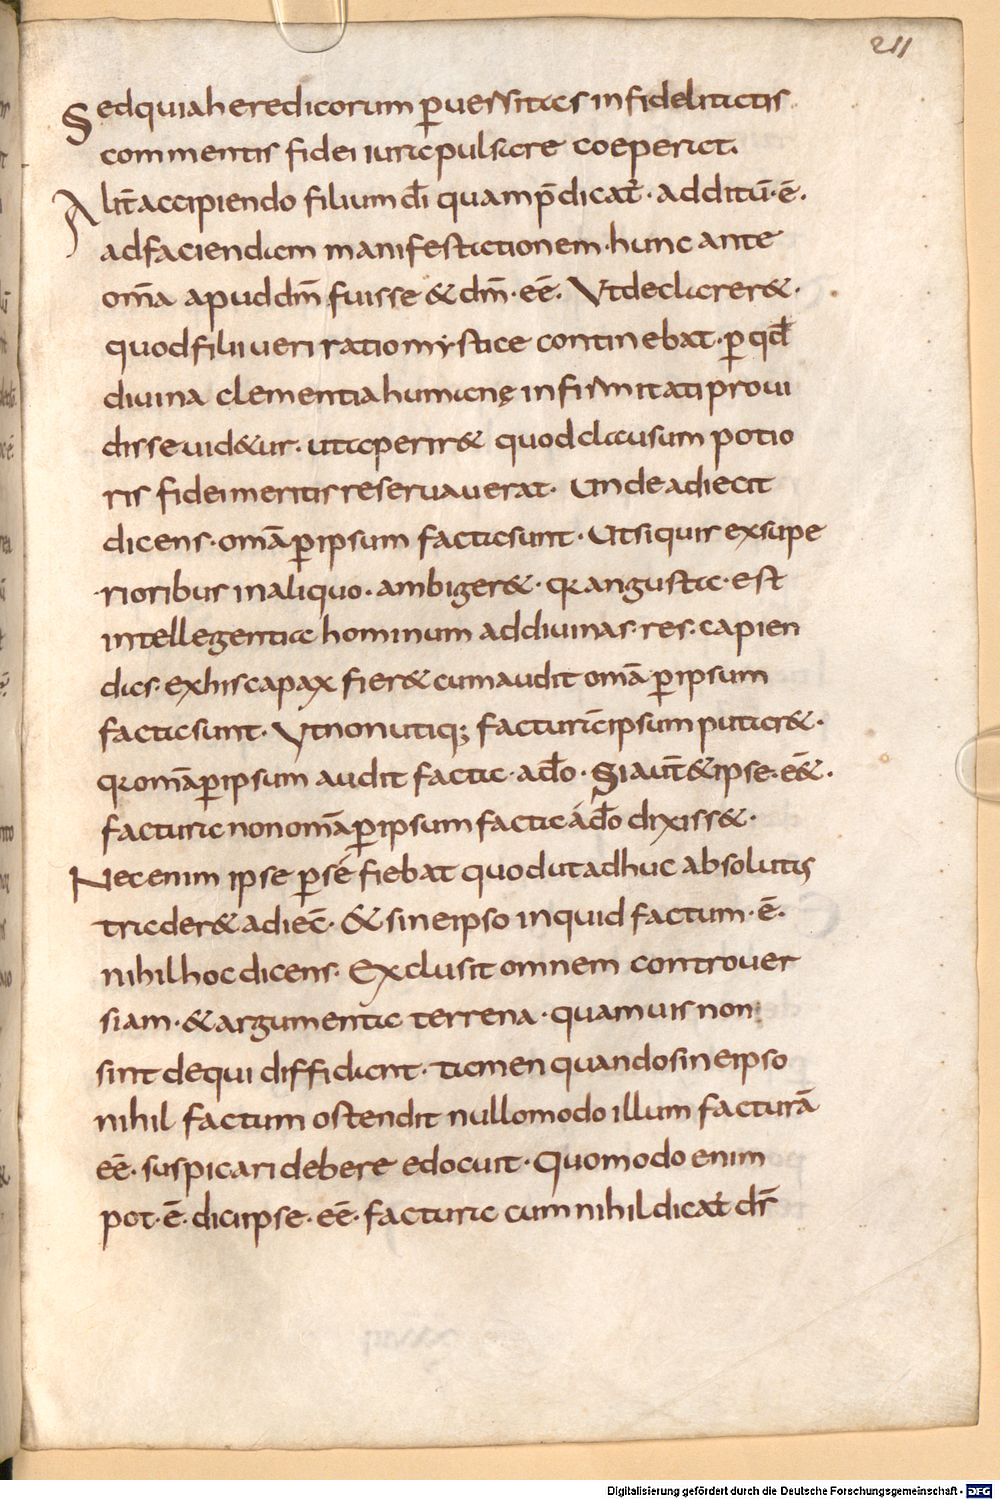 211
Sedquiaheredicorum p̱uersitas infidelitatis
commentis fidei iurapulsare coeperat.
Alit̄accipiendo filium dī quamp̄dicat̄· additū·ē·
adfaciendam manifestationem·hunc ante
om̄a apuddm̄ fuisse & dm̄·eē. Utdeclarer&·
quodfilii ueri ratio mystice continebat·p̱ qđ
diuina clementia humanę infirmitatiproui
disseuid&ur· utaperir& quodclausum potio
ris fideimeritisreseruauerat· Undeadiecit
dicens·om̄ap̱ipsum factasunt· Utsiquis exsupe
rioribus inaliquo·ambiger&· qꝛangusta·est
intellegentia hominum addiuinas·res·capien
das·exhiscapax fier&cumaudit om̄a p̱ipsum
factasunt· Utnonutiq; facturāipsumputar&·
qꝛom̄ap̱ipsum audit facta·ađo· Si aut̄&ipse·eē&·
factura nonom̄ap̱ipsumfacta áđo dixiss&·
Necenim ipse p̱sé fiebat quodutadhuc absolutiꝰ
trader&adiec̄· & sineipso inquid factum·ē·
nihilhocdicens· Exclusit omnem controuer
siam·&argumenta terrena·quamuis non
sint dequi diffidant· tamen quandosineipso
nihil factum ostendit nullomodo illum facturā
eē· suspicari debere edocuit· Quomodo enim
pot·ē·diciipse·eē·factura cum nihildicat̄ dr̄
Digitalisierung gefördert durch die Deutsche Forschungsgemeinschaft - DFG